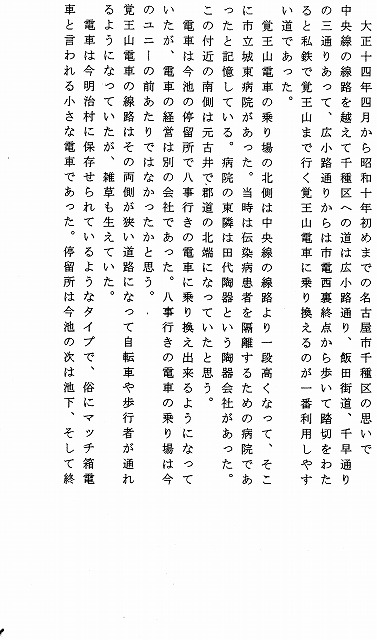 大正十四年四月から昭和十年初めまでの名古屋市千種区の思いで
中央線の線路を越えて千種区への道は広小路通り、飯田街道、千早通り
の三通りあって、広小路通りからは市電西裏終点から歩いて踏切をわた
ると私鉄で覚王山まで行く覚王山電車に乗り換えるのが一番利用しやす
い道であった。
覚王山電車の乗り場の北側は中央線の線路より一段高くなって、そこ
に市立城東病院があった。当時は伝染病患者を隔離するための病院であ
ったと記憶している。病院の東隣は田代陶器という陶器会社があった。
この付近の南側は元古井で郡道の北端になっていたと思う。
電車は今池の停留所で八事行きの電車に乗り換え出来るようになって
いたが、電車の経営は別の会社であった。八事行きの電車の乗り場は今
のユニーの前あたりではなかったかと思う。
覚王山電車の線路はその両側が狭い道路になって自転車や歩行者が通れ
るようになっていたが、雑草も生えていた。
電車は今明治村に保存せられているようなタイプで、俗にマッチ箱電
車と言われる小さな電車であった。停留所は今池の次は池下、そして終